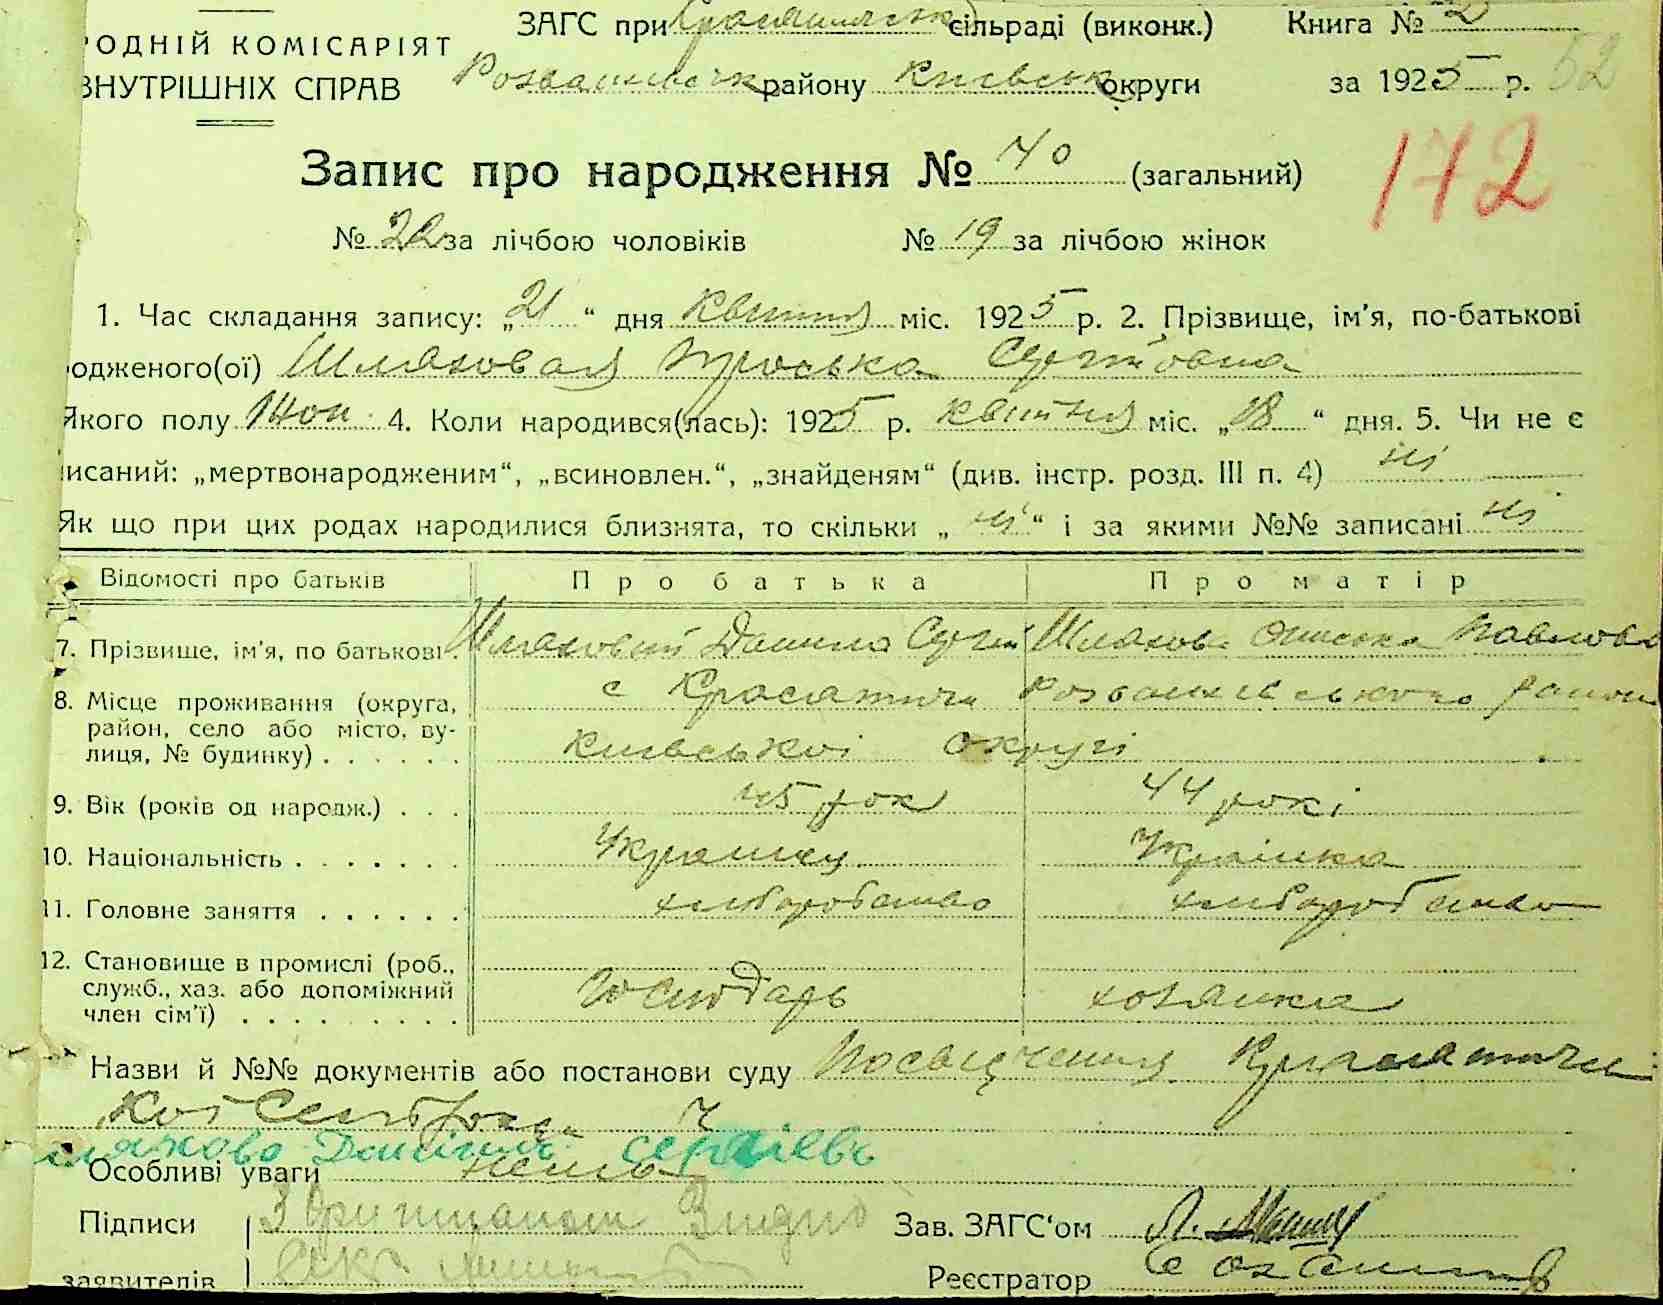 РОДНІЙ КОМІСАРІЯТ
ВНУТРІШНІХ СПРАВ
ЗАГС при сільраді (виконк.) Книга № 2
району Київськ округи за 1925 р. 52
Запис про народження № 40 (загальний)
172
№ 22 за лічбою чоловіків № 19 за лічбою жінок
1. Час складання запису: „21“ дня Квітня міс. 1925 р. 2. Прізвище, ім’я, по-батькові
одженого(ої) Шляховая Проська
Якого полу Жон 4. Коли народився(лась): 1925 р. квітня міс. „18“ дня. 5. Чи не є
исаний: „мертвонародженим“, „всиновлен.“, „знайденям“ (див. інстр. розд. III п. 4) ні
Як що при цих родах народилися близнята, то скільки „ні“ і за якими №№ записані ні
Відомості про батьків Про батька Про матір
7. Прізвище, ім’я, по батькові. Шляховий Данило Сергій Шляхова Павлова
8. Місце проживання (округа, район, село або місто, вулиця, № будинку) с Красятичи Розважівського район
Київської округі
9. Вік (років од народж.) 45 рок 44 рокі
10. Національність Украинец Украінка
11. Головне заняття хлиборобство хлиборобство
12. Становище в промислі (роб., служб., хаз. або допоміжний член сім’ї) Господарь хозяика
Назви й №№ документів або постанови суду Посвідчення Красятичи
кої Сельради
ляхово Даніїль сергіевь
Особливі уваги нема
Підписи Зав. ЗАГС‘ом
заявителів Реєстратор